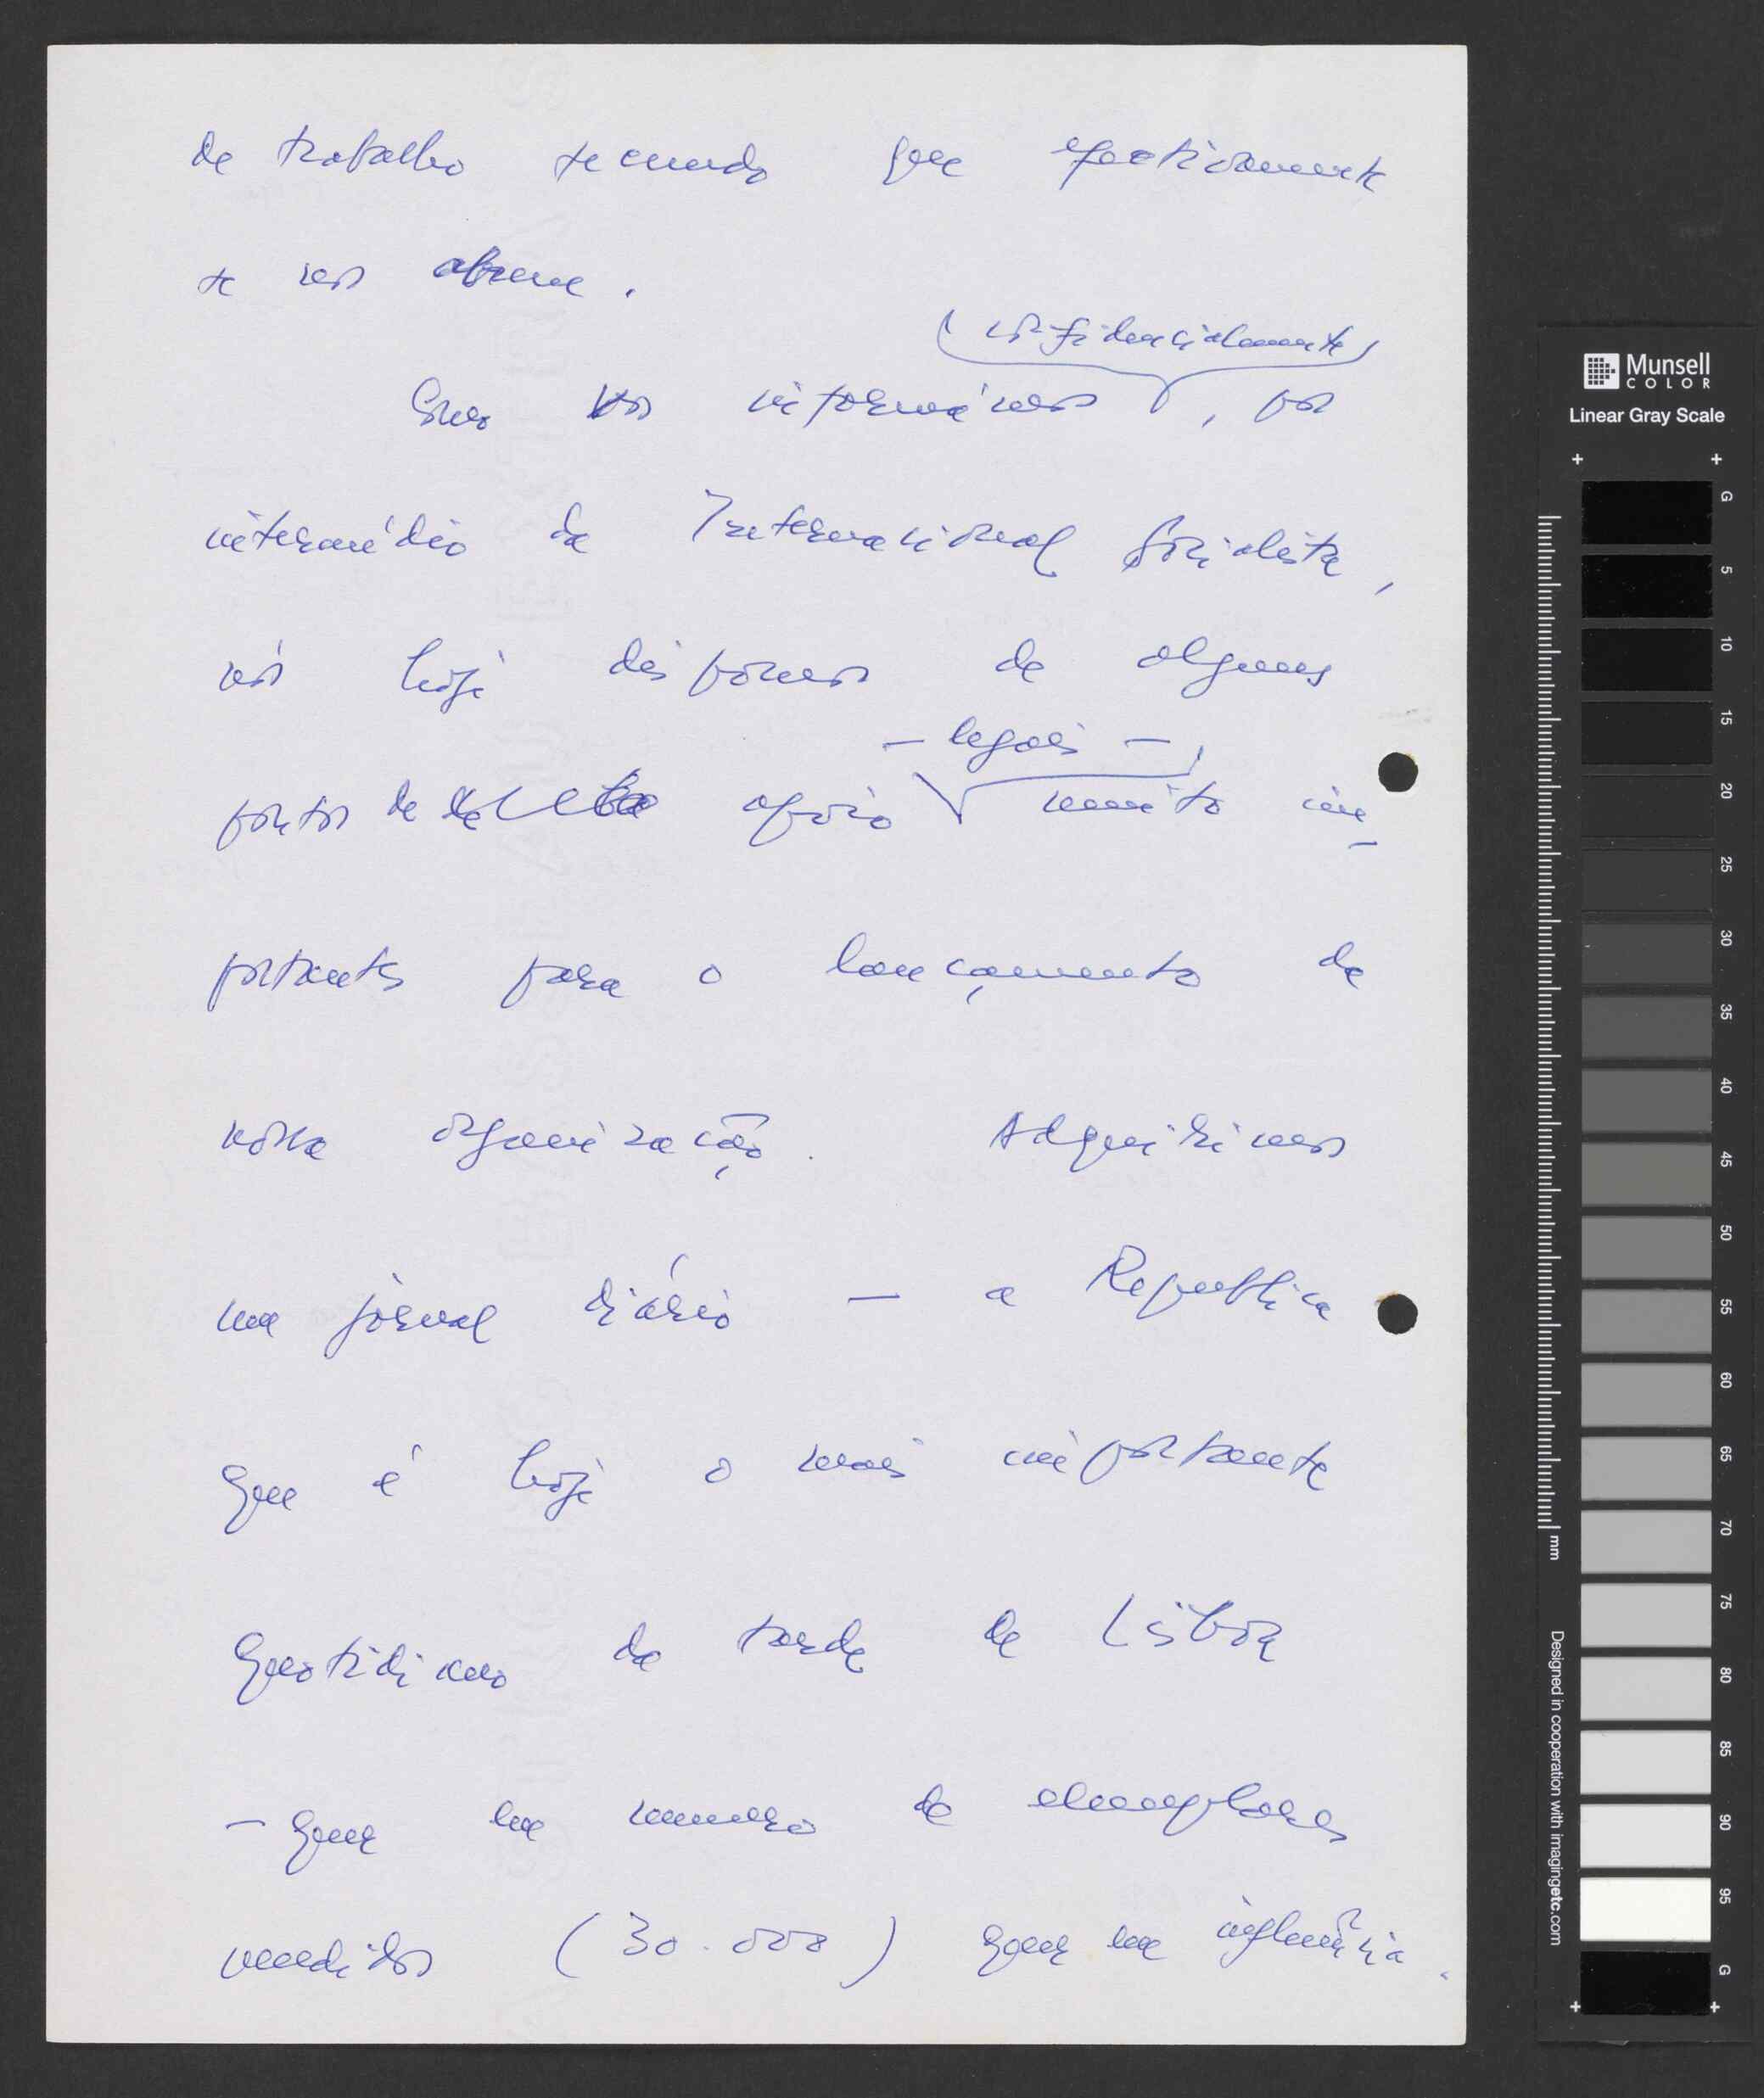 de trabalho fecundo que efectivamente
se nos abrem.
(confidencialmente)
Como vos informámos, por
intermédio da Internacional Socialista,
nós hoje dispomos de alguns
– legais –
pontos de apoio muito im-
portantes para o lançamento da
nossa organização. Adquirimos
um jornal diário — a Republica
que é hoje o mais importante
quotidiano da tarde de Lisboa
– quer em numero de exemplares
vendidos (30.000) quer em influência.
Munsell
COLOR
Linear Gray Scale
G
5
10
15
20
25
30
35
40
45
50
55
60
65
70
75
80
85
90
95
G
mm
Designed in cooperation with imagingetc.com